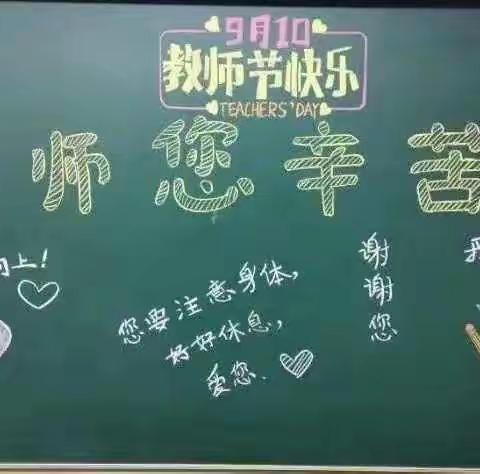 9月10
教师节快乐
TEACHERS' DAY
师您辛苦
向上！
您要注意身体，
好好休息，
爱您.
谢谢您